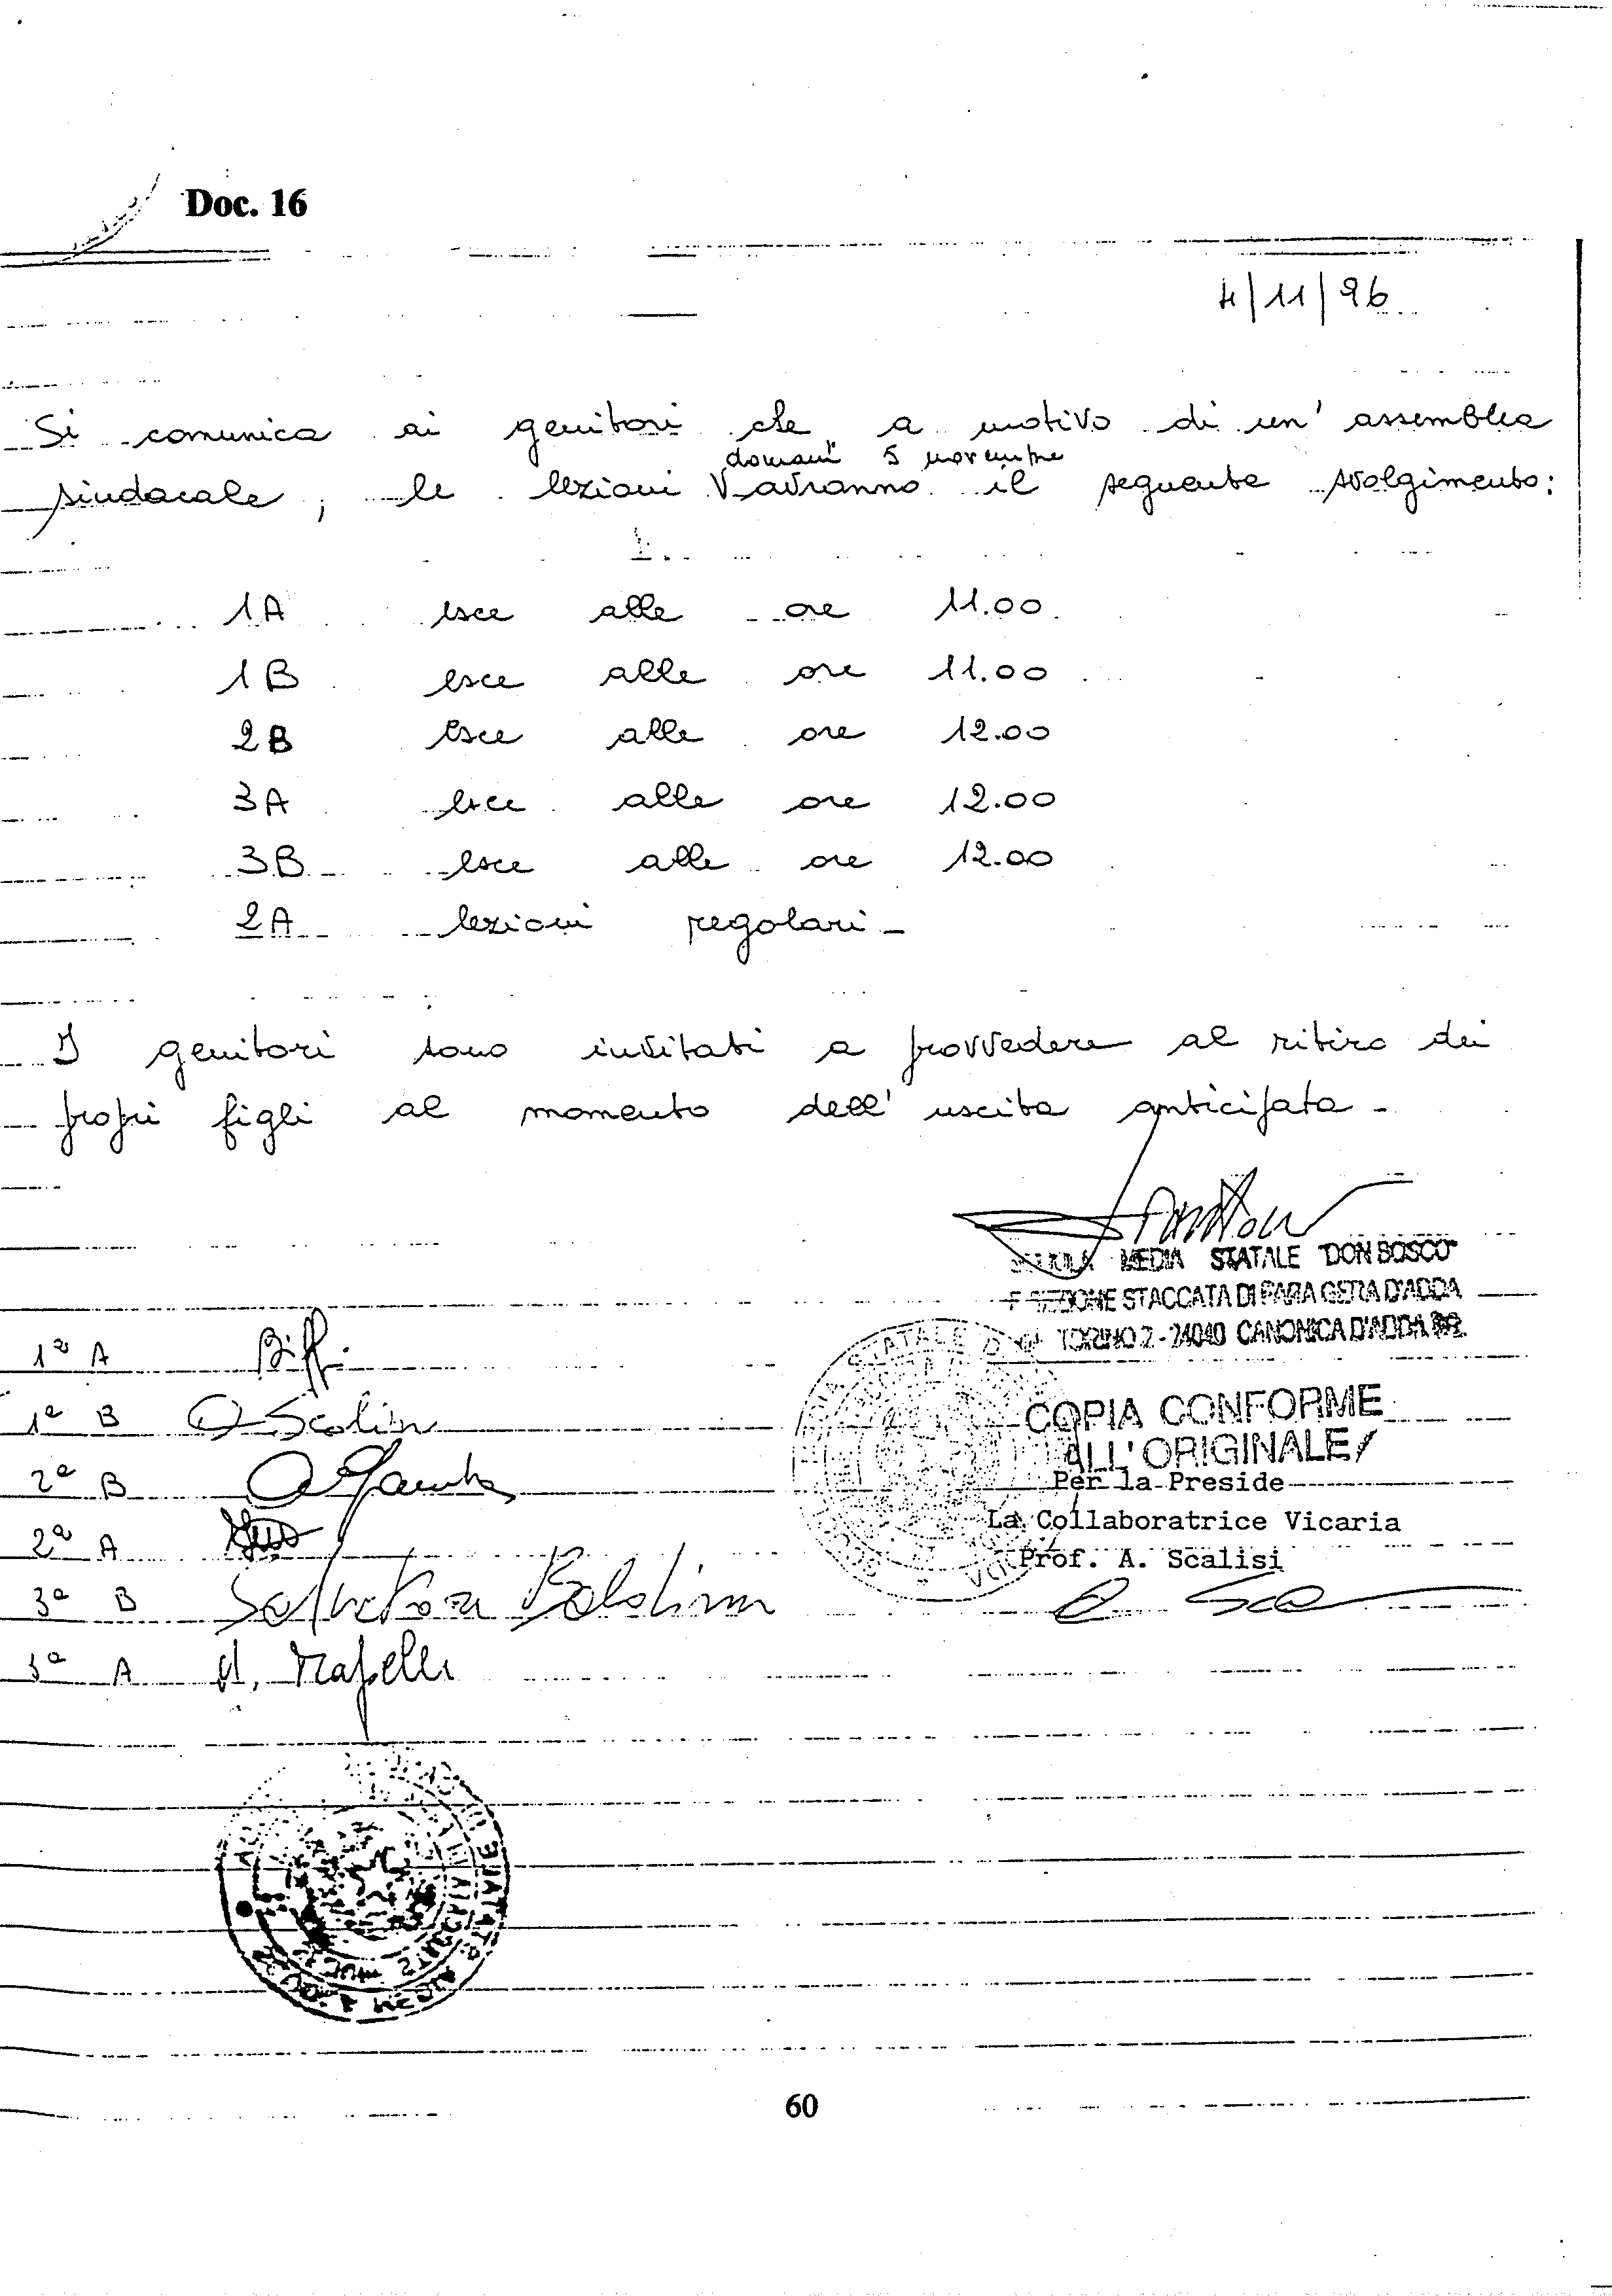 Doc. 16
4/11/96
Si comunica ai genitori che, a motivo di un' assemblea
domani 5 novembre
sindacale, le lezioni V avranno il seguente svolgimento:
1A esce alle ore 11.00
1B esce alle ore 11.00
2B esce alle ore 12.00
3A esce alle ore 12.00
3B esce alle ore 12.00
2A lezioni regolari -
I genitori sono invitati a provvedere al ritiro dei
propri figli al momento dell' uscita anticipata -
MEDIA STATALE "DON BOSCO"
SEZIONE STACCATA DI FARA GERA D'ADDA
TORINO 2 - 24040 CANONICA D'ADDA
1ª A Biffi
1ª B
COPIA CONFORME
ALL'ORIGINALE
2ª B
Per la Preside
La Collaboratrice Vicaria
2ª A
Prof. A. Scalisi
3ª B
3ª A
60